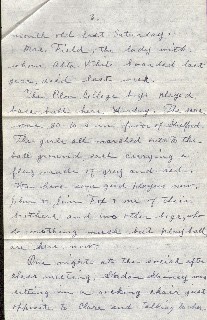 2.
month old last Saturday.
Mrs. Field, the lady with
whom Alta White boarded last
year, died last week.
The Penn College boys played
base ball here Monday. The score
was, 20 to 4 in favor of
The girls all marched over to the
ball ground each carrying a
flag made of gray and red.
We have some good players now,
John & Jim Fox & one of their
brothers and two other boys, who
do nothing much but play ball
are here now.
One night at the social after
class meeting,
sitting in a rocking chair just
opposite to Clare and talking to her